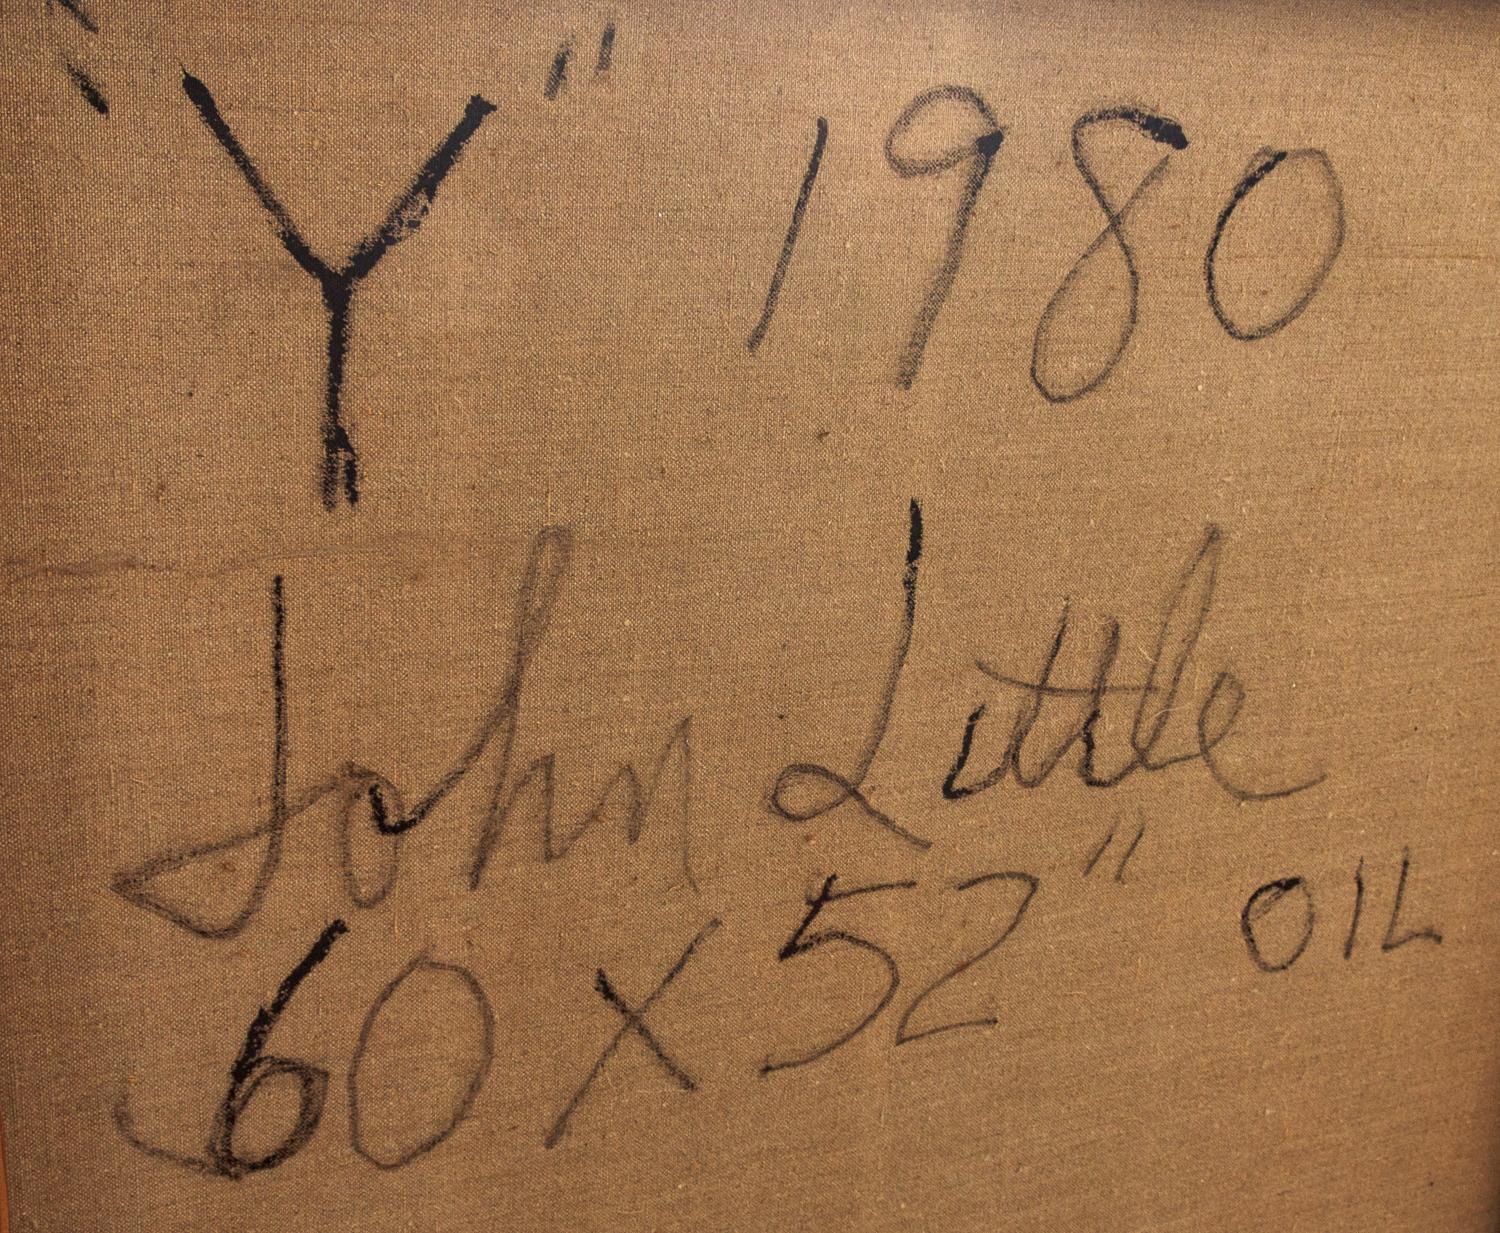 "Y" 1980
John Little
60 x 52" OIL